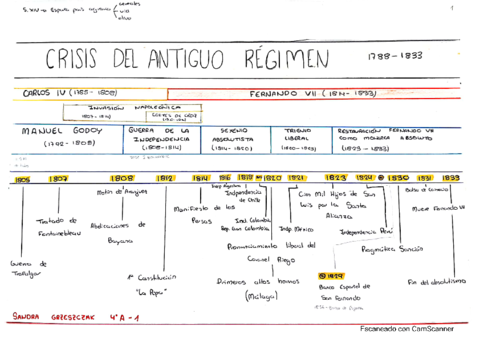 cereales
vid
olivo
1
CRISIS DEL ANTIGUO RÉGIMEN 1788-1833
CARLOS IV (1788-1808)
FERNANDO VII (1814-1833)
INVASIÓN NAPOLEÓNICA
1807-1814
CORTES DE CÁDIZ
MANUEL GODOY
(1792-1808)
GUERRA DE LA
INDEPENDENCIA
(1808-1814)
SEXENIO
ABSOLUTISTA
(1814-1820)
TRIENIO
LIBERAL
(1820-1823)
RESTAURACIÓN FERNANDO VII
COMO MONARCA ABSOLUTO
(1823-1833)
1805 1807 1808 1812 1814 1816 1818 1820 1821 1823 1824 1830 1831 1833
Guerra de
Trafalgar
Tratado de
Fontainebleau
Motín de Aranjuez
Abdicaciones de
Bayona
1ª Constitución
"La Pepa"
Manifiesto de los
Persas
Indep Argentina
Independencia
de Chile
Ind. Colombia
Rep Gran Colombia
Pronunciamiento liberal del
Coronel Riego
Primeros altos hornos
(Málaga)
Indp México
Cien Mil Hijos de San
Luis por la Santa
Alianza
Independencia Perú
1829
Banco Español de
San Fernando
Pragmática Sanción
Muere Fernando VII
Fin del absolutismo
SANDRA GRZESZCZAK 4ºA-1
Escaneado con CamScanner